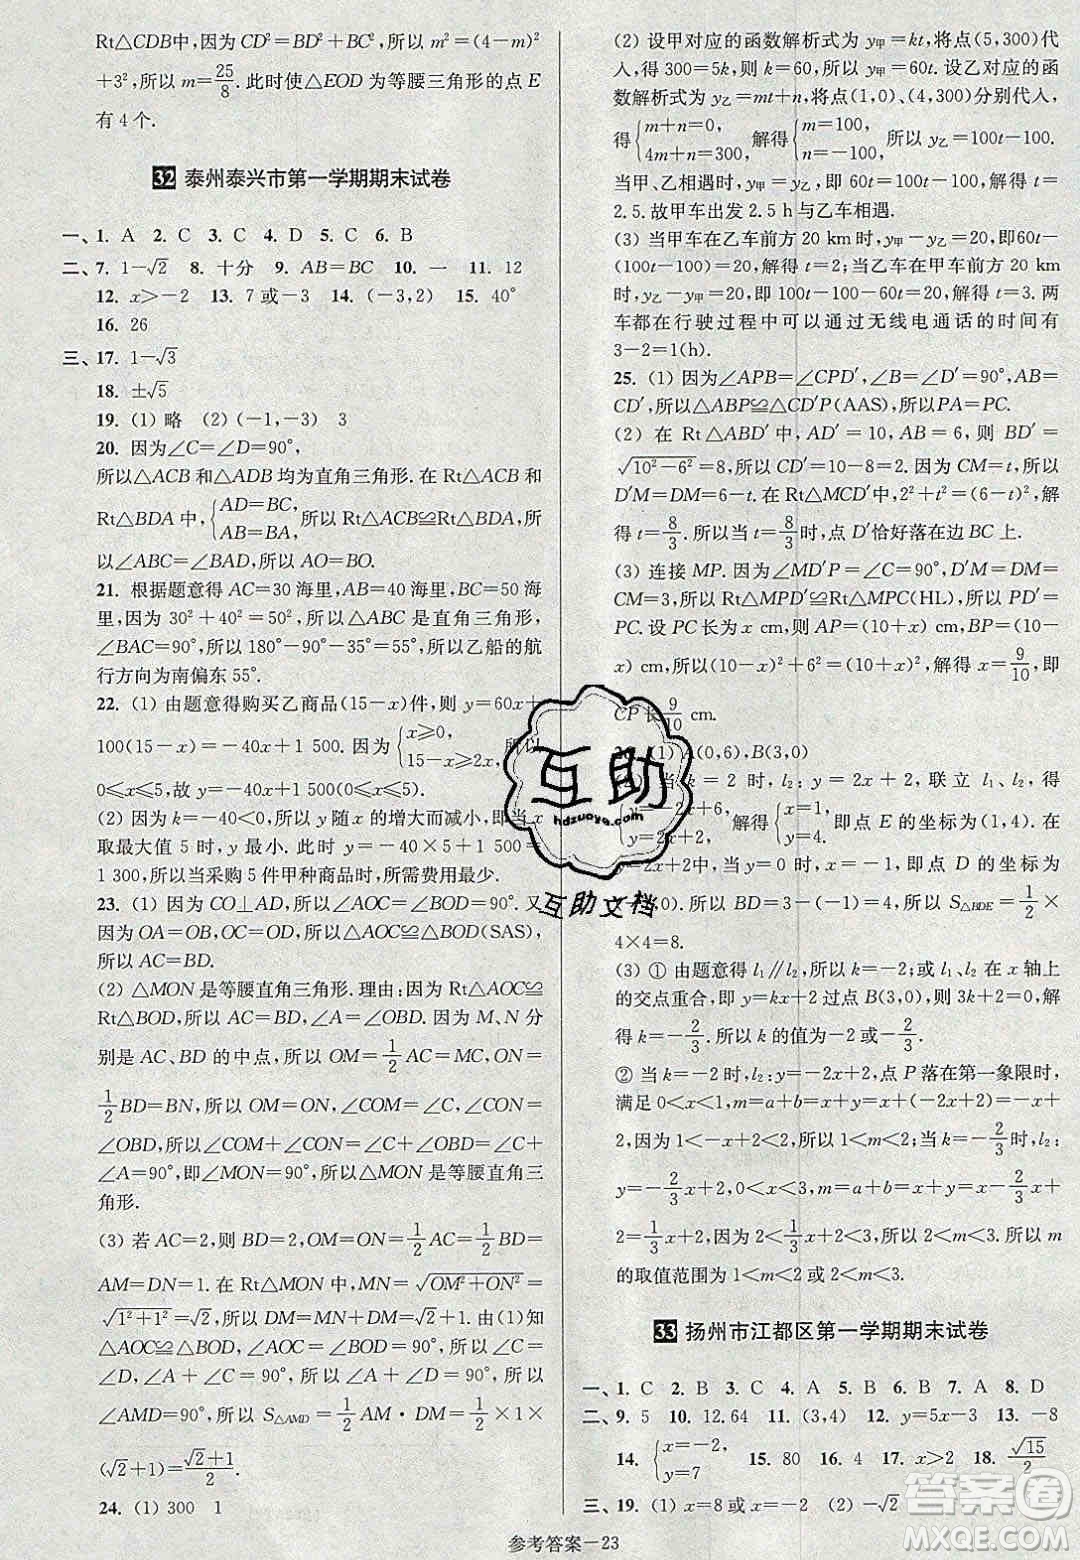 Rt△CDB中,因为CD²=BD²+BC²,所以m²=(4-m)²
+3²,所以m=25/8.此时使△EOD为等腰三角形的点E
有4个.
32 泰州泰兴市第一学期期末试卷
一、1. A 2. C 3. C 4. D 5. C 6. B
二、7. 1-√2 8. 十分 9. AB=BC 10. 一 11. 12
12. x>-2 13. 7或-3 14. (-3,2) 15. 40°
16. 26
三、17. 1-√3
18. ±√5
19. (1) 略 (2) (-1,-3) 3
20. 因为∠C=∠D=90°,
所以△ACB和△ADB均为直角三角形.在Rt△ACB和
Rt△BDA中,{AD=BC, AB=BA,所以Rt△ACB≌Rt△BDA,所
以∠ABC=∠BAD,所以AO=BO.
21. 根据题意得AC=30海里,AB=40海里,BC=50海
里,因为30²+40²=50²,所以△ABC是直角三角形,
∠BAC=90°,所以180°-90°-35°=55°,所以乙船的航
行方向为南偏东55°.
22. (1) 由题意得购买乙商品(15-x)件,则y=60x+
100(15-x)=-40x+1 500.因为{x≥0, 15-x≥2x,所以
0≤x≤5.故y=-40x+1 500(0≤x≤5).
(2) 因为k=-40<0,所以y随x的增大而减小,即当x
取最大值5时,y最小.此时y=-40×5+1 500=
1 300,所以当采购5件甲种商品时,所需要的费用最少.
23. (1) 因为CO⊥AD,所以∠AOC=∠BOD=90°.又
因为OA=OB,OC=OD,所以△AOC≌△BOD(SAS),所
以AC=BD.
(2) △MON是等腰直角三角形.理由:因为Rt△AOC≌
Rt△BOD,所以AC=BD,∠A=∠OBD.又因为M、N分
别是AC、BD的中点,所以OM=1/2AC=MC,ON=
1/2BD=BN,所以OM=ON,∠COM=∠C,∠CON=
∠OBD,所以∠MON=∠COM+∠CON=∠OBD+∠C+
∠A=90°,即∠MON=90°,所以△MON是等腰直角三
角形.
(3) 若AC=2,则BD=2,所以OM=1/2AC=1/2BD=
AM=DN=1.在Rt△MON中,MN=√OM²+ON²=
√1²+1²=√2,所以DM=MN+DM=√2+1.由(1)知
△AOC≌△BOD,∠A+∠C=90°,所以∠C=
∠D,∠A+∠D=90°,所以∠AMD=90°,所以
∠AMD=90°,所以S△AMD=1/2AM·DM=1/2×1×
(√2+1)=√2+1/2.
24. (1) 300 1
(2) 设甲对应的函数解析式为y甲=kt,将点(5,300)代
入,得300=5k,则k=60,所以y甲=60t.设乙对应的函
数解析式为y乙=mt+n,将点(1,0)、(4,300)分别代入,
得{m+n=0, 4m+n=300,解得{m=100, n=-100,所以y乙=100t-100.
当甲、乙两车相遇时,y甲=y乙,即60t=100t-100,解得t=
2.5.故甲车出发2.5 h与乙车相遇.
(3) 当甲车在乙车前方20 km时,y甲-y乙=20,即60t-
(100t-100)=20,解得t=2;当乙车在甲车前方20 km
时,y乙-y甲=20,即100t-100-60t=20,解得t=3.两
车都在行驶过程中可以通过无线电通话的时间有
3-2=1(h).
25. (1) 因为∠APB=∠CPD′,∠B=∠D′=90°,AB=
CD′,所以△ABP≌△CD′P(AAS),所以PA=PC.
(2) 在Rt△ABD′中,AD′=10,AB=6,则BD′=
√10²-6²=8,所以CD′=10-8=2.因为CM=t,所以
D′M=DM=6-t.在Rt△MCD′中,2²+t²=(6-t)²,解
得t=8/3.所以当t=8/3时,点D′恰好落在边BC上.
(3) 连接MP.因为∠MD′P=∠C=90°,D′M=DM=
CM=3,所以Rt△MPD′≌Rt△MPC(HL),所以PD′=
PC.设PC长为x cm,所以AP=(10+x)cm,BP=(10-
x) cm,则(10-x)²+6²=(10+x)²,解得x=9/10,即
CP长9/10 cm.
(1) A(0,6),B(3,0)
当k=2时,l₂:y=2x+2,联立l₁、l₂,得
y=2x+2,解得{x=1, y=4,即点E的坐标为(1,4).在
y=2x+2中,当y=0时,x=-1,即点D的坐标为
所以BD=3-(-1)=4,所以S△BDE=1/2×
4×4=8.
(3) ① 由题意得l₁∥l₂,所以k=-2;当l₁、l₂在x轴上
的交点重合,即直线y=kx+2过点B(3,0),则3k+2=0,解
得k=-2/3.所以k的值为-2或-2/3.
② 当k=-2时,l₂:y=-2x+2,点P落在第一象限时,
满足0<x<1,m=a+b=x+(-2x+2)=-x+
2,因为1<-x+2<2,所以1<m<2;当k=-2/3时,l₂:
y=-2/3x+2,0<x<3,m=a+b=x-2/3x+
2=1/3x+2,因为2<1/3x+2<3,所以2<m<3.所以m
的取值范围为1<m<2或2<m<3.
33 扬州市江都区第一学期期末试卷
一、1. C 2. B 3. C 4. A 5. C 6. B 7. A 8. D
二、9. 5 10. 12.64 11. (3,4) 12. y=5x-3 13. -8
14. {x=-2, y=7 15. 80 16. 4 17. x>2 18. √15/2
三、19. (1) x=8或x=-2 (2) -√2
参考答案—23
互助
hdzuoye.com
互助文档
答案圈
MXQE.COM